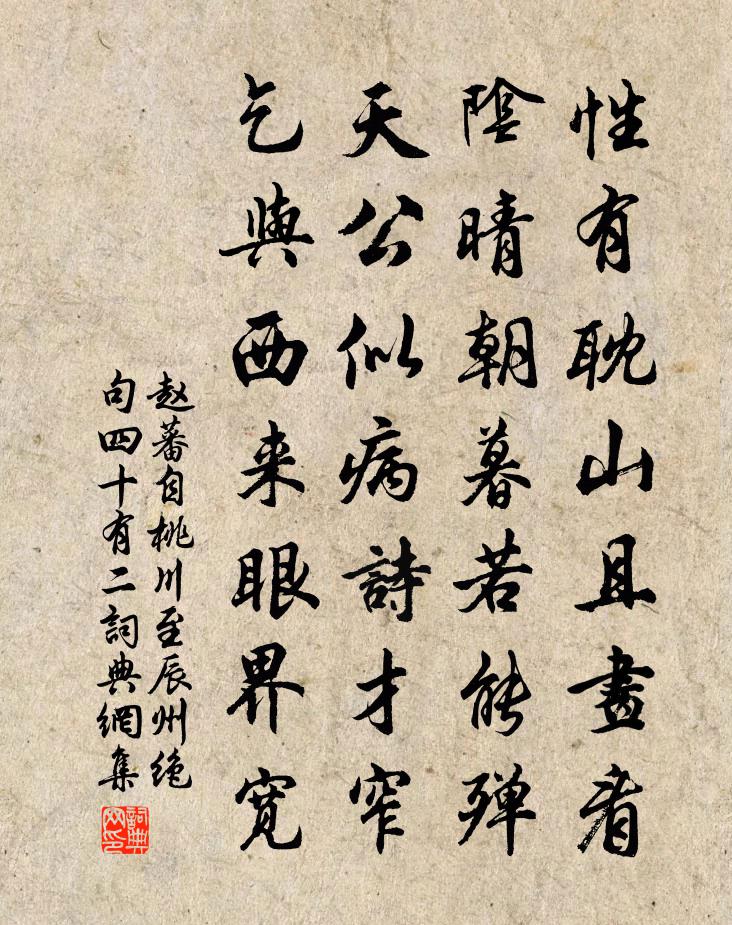 性有耽山且畫看
陰晴朝暮若能殫
天公似病詩才窄
乞與西来眼界寬
赵蕃自桃川至辰州绝
句四十有二詞典網集
詞典网印